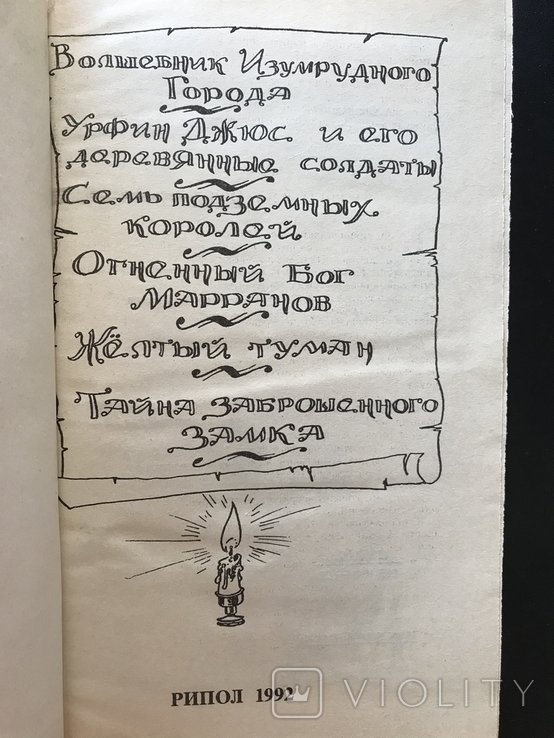 Волшебник Изумрудного
Города
Урфин Джюс и его
деревянные солдаты
Семь подземных
королей
Огненный Бог
Марранов
Жёлтый туман
Тайна заброшенного
замка
РИПОЛ 1992
VIOLITY